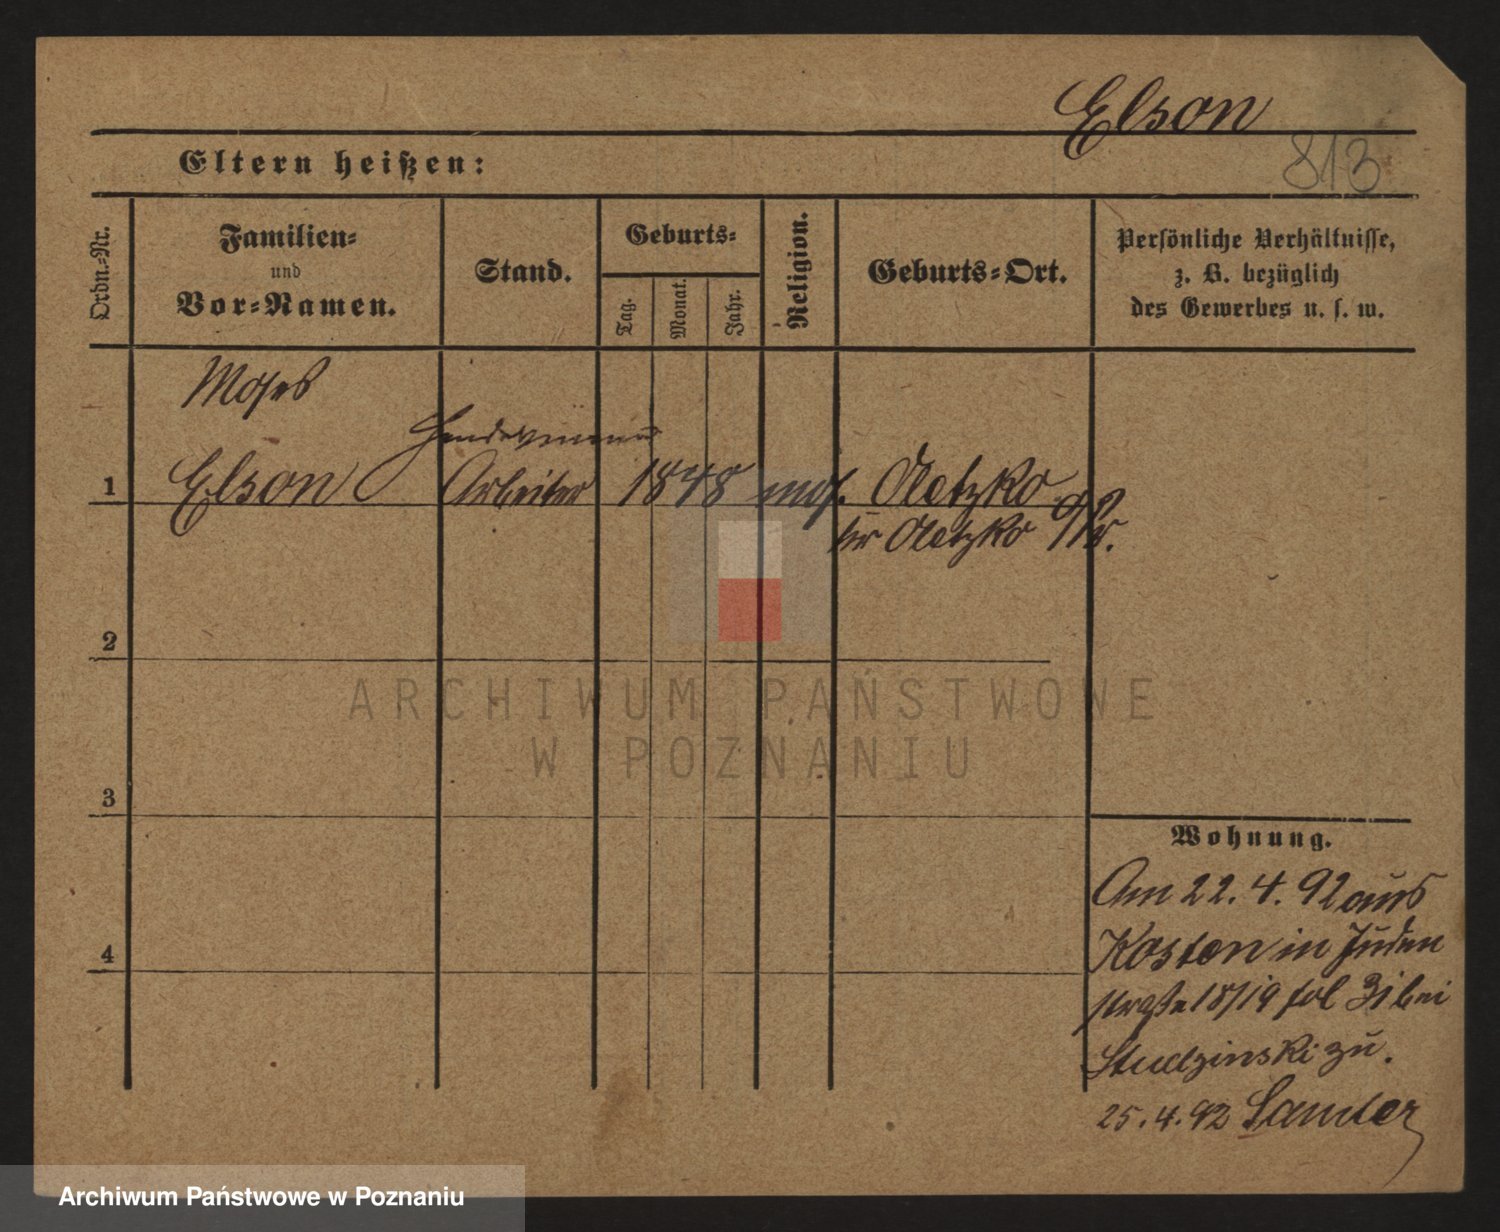 Elson
813
Eltern heißen:
Ordn.-Nr.
Familien-
und
Vor-Namen.
Stand.
Geburts-
Tag.
Monat.
Jahr.
Religion.
Geburts-Ort.
Persönliche Verhältnisse,
z. B. bezüglich
des Gewerbes u. s. w.
Moses
1 Elson Arbeiter 1848 mos. Oletzko
kr Oletzko O/Pr.
2
3
4
Wohnung.
Am 22.4.92 aus
Kosten in Juden
straße 18/19 fol 31 bei
Studzinski zu.
25.4.92 Samter
ARCHIWUM PAŃSTWOWE
W POZNANIU
Archiwum Państwowe w Poznaniu